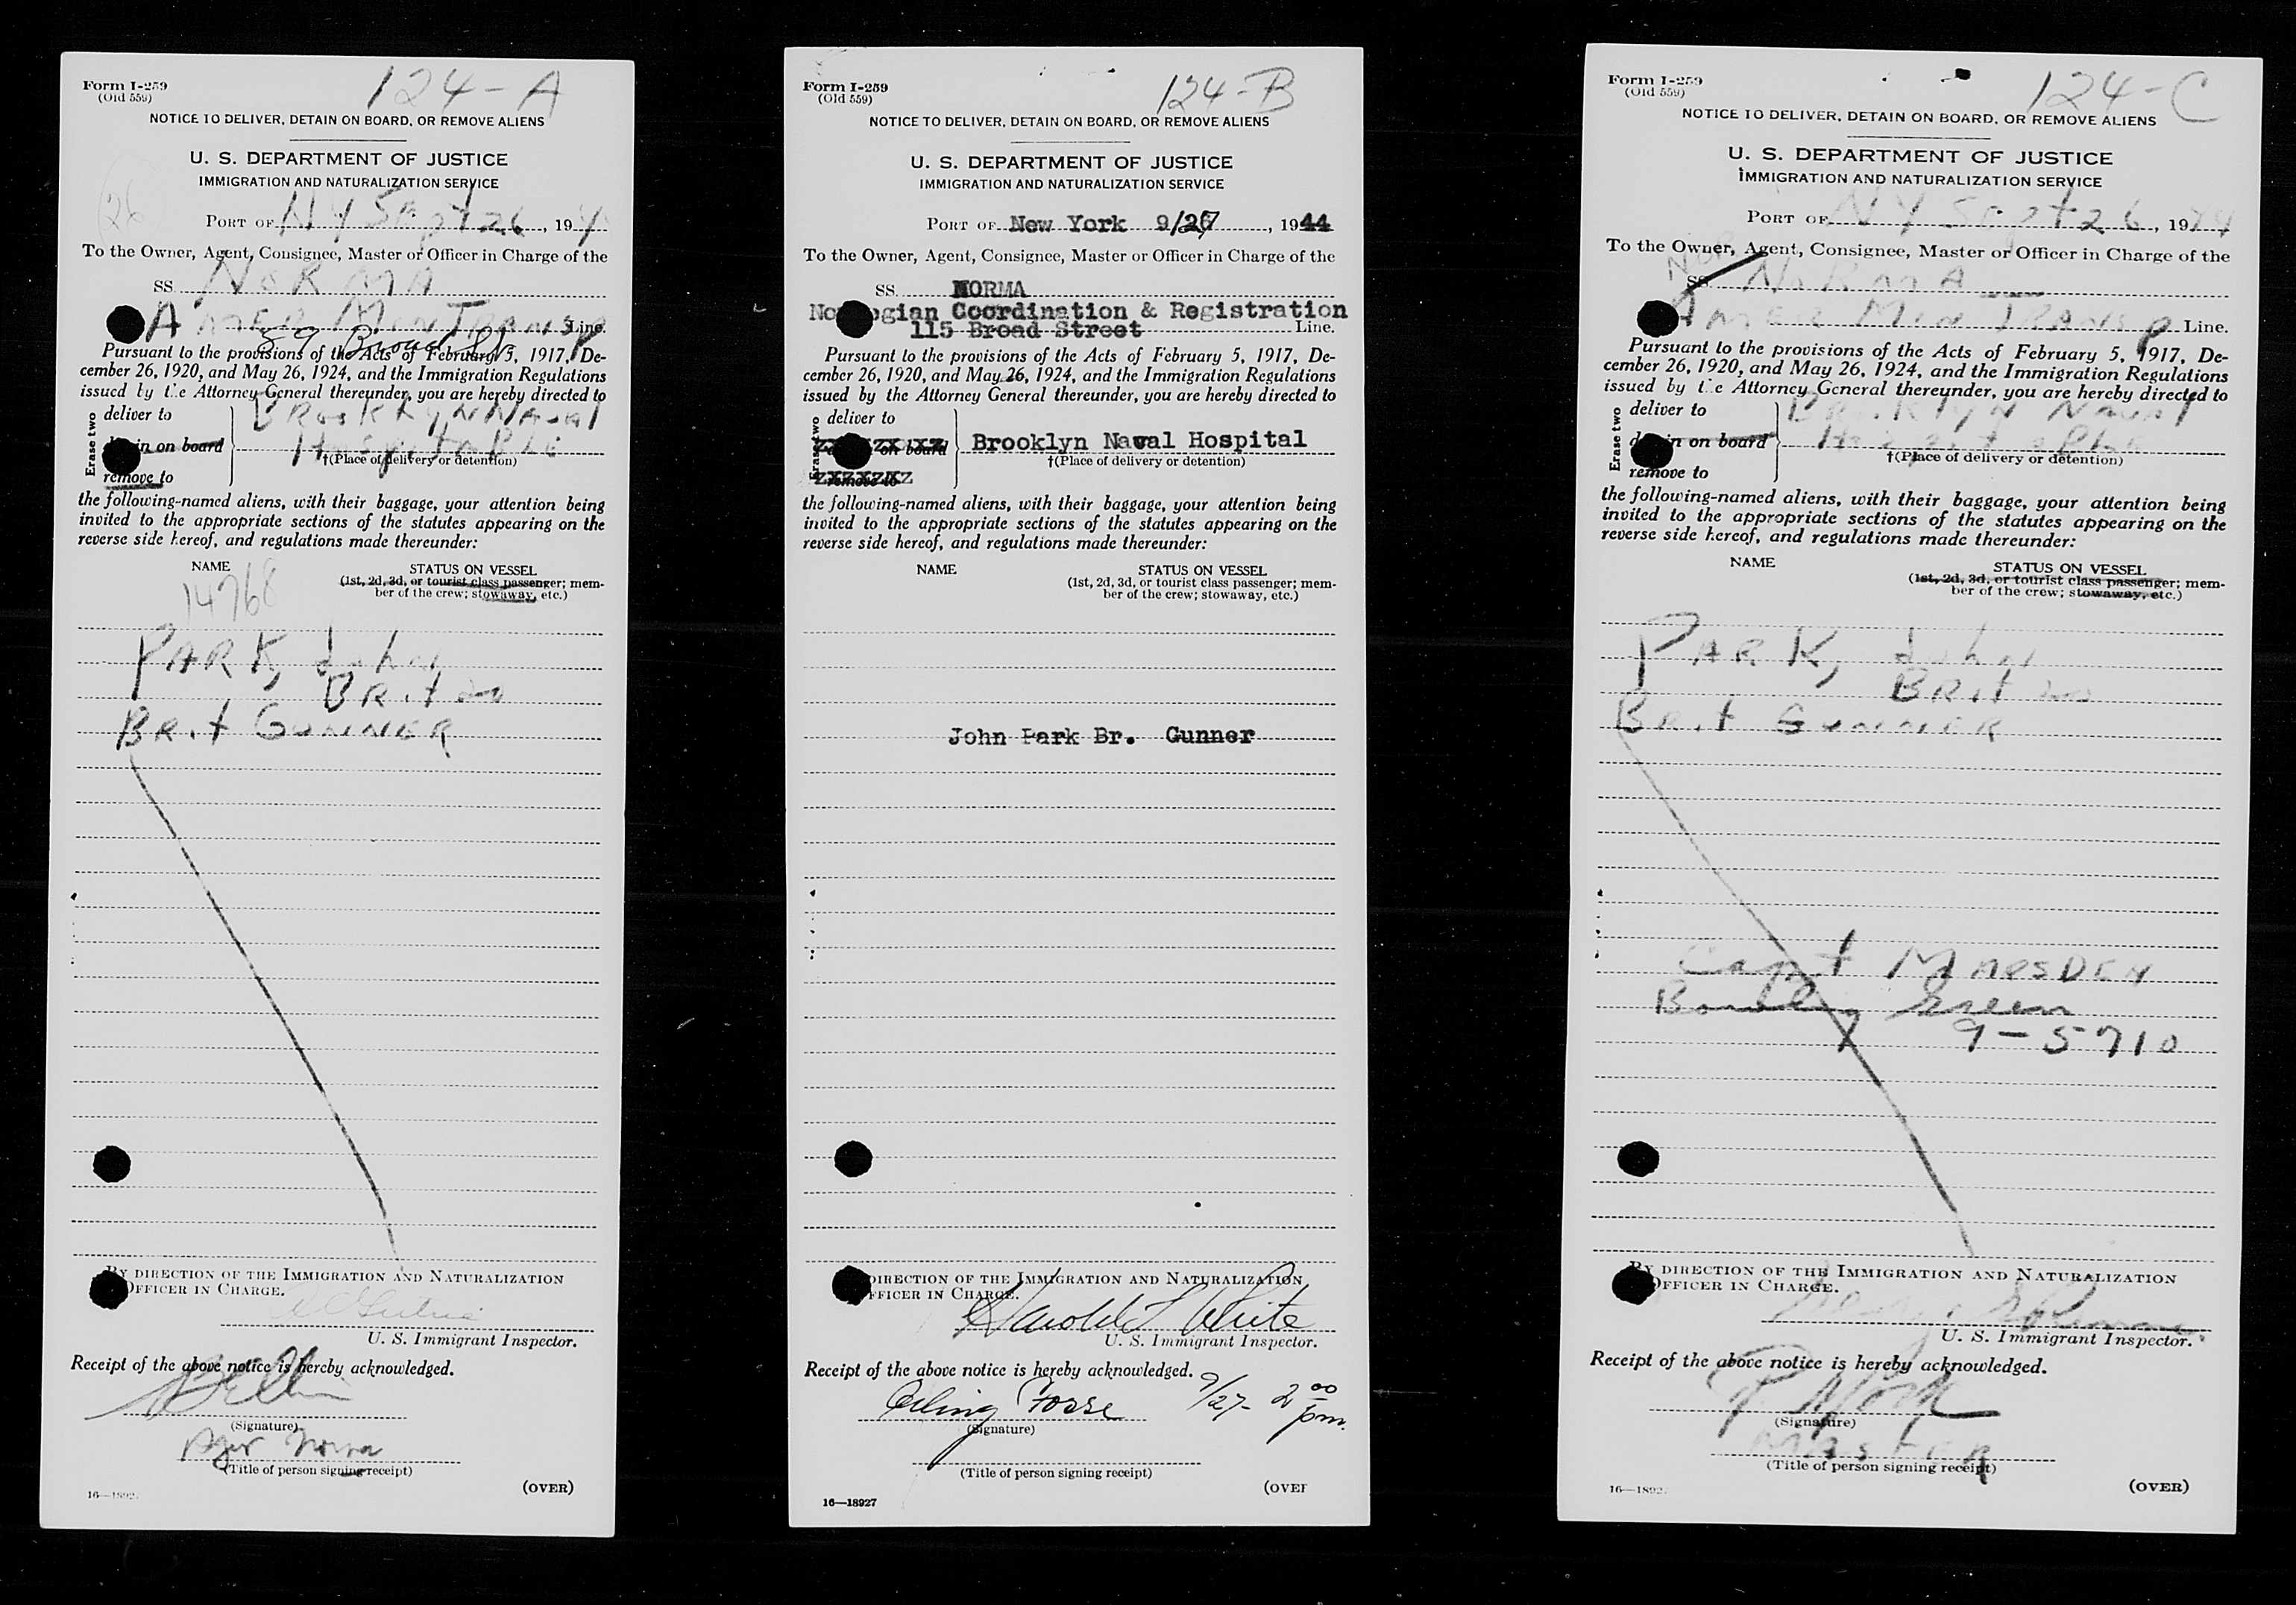 Form I-259
(Old 559)
124-A
NOTICE TO DELIVER, DETAIN ON BOARD, OR REMOVE ALIENS
U. S. DEPARTMENT OF JUSTICE
IMMIGRATION AND NATURALIZATION SERVICE
26
PORT OF NY Sept 26, 194
To the Owner, Agent, Consignee, Master or Officer in Charge of the
SS. NORMA
AMER MIN TRANSP Line.
89 Broad St
Pursuant to the provisions of the Acts of February 5, 1917, De-
cember 26, 1920, and May 26, 1924, and the Immigration Regulations
issued by the Attorney General thereunder, you are hereby directed to
Erase two
deliver to
in on board
remove to
Brooklyn Naval
†(Place of delivery or detention)
the following-named aliens, with their baggage, your attention being
invited to the appropriate sections of the statutes appearing on the
reverse side hereof, and regulations made thereunder:
NAME
STATUS ON VESSEL
(1st, 2d, 3d, or tourist class passenger; mem-
ber of the crew; stowaway, etc.)
14768
PARK, John
BRit
BRit GUNNER
BY DIRECTION OF THE IMMIGRATION AND NATURALIZATION
OFFICER IN CHARGE.
U. S. Immigrant Inspector.
Receipt of the above notice is hereby acknowledged.
(Signature)
(Title of person signing receipt)
(OVER)
Form I-259
(Old 559)
124-B
NOTICE TO DELIVER, DETAIN ON BOARD, OR REMOVE ALIENS
U. S. DEPARTMENT OF JUSTICE
IMMIGRATION AND NATURALIZATION SERVICE
PORT OF New York 9/27, 1944
To the Owner, Agent, Consignee, Master or Officer in Charge of the
SS. NORMA
No gian Coordination & Registration
115 Broad Street Line.
Pursuant to the provisions of the Acts of February 5, 1917, De-
cember 26, 1920, and May 26, 1924, and the Immigration Regulations
issued by the Attorney General thereunder, you are hereby directed to
Erase two
deliver to
on board
remove to
Brooklyn Naval Hospital
†(Place of delivery or detention)
the following-named aliens, with their baggage, your attention being
invited to the appropriate sections of the statutes appearing on the
reverse side hereof, and regulations made thereunder:
NAME
STATUS ON VESSEL
(1st, 2d, 3d, or tourist class passenger; mem-
ber of the crew; stowaway, etc.)
John Park Br. Gunner
DIRECTION OF THE IMMIGRATION AND NATURALIZATION
FFICER IN CHARGE.
Harold F White
U. S. Immigrant Inspector.
Receipt of the above notice is hereby acknowledged.
Erling Fosse 9/27- 2 00 pm.
(Signature)
(Title of person signing receipt)
(OVER
16—18927
Form I-259
(Old 559)
124-C
NOTICE TO DELIVER, DETAIN ON BOARD, OR REMOVE ALIENS
U. S. DEPARTMENT OF JUSTICE
IMMIGRATION AND NATURALIZATION SERVICE
PORT OF NY Sept 26, 1944
To the Owner, Agent, Consignee, Master or Officer in Charge of the
Nor
SS. NORMA
AMER MIN TRANSP Line.
Pursuant to the provisions of the Acts of February 5, 1917, De-
cember 26, 1920, and May 26, 1924, and the Immigration Regulations
issued by the Attorney General thereunder, you are hereby directed to
Erase two
deliver to
in on board
remove to
Brooklyn Naval
†(Place of delivery or detention)
the following-named aliens, with their baggage, your attention being
invited to the appropriate sections of the statutes appearing on the
reverse side hereof, and regulations made thereunder:
NAME
STATUS ON VESSEL
(1st, 2d, 3d, or tourist class passenger; mem-
ber of the crew; stowaway, etc.)
PARK, John
BRit
BRit GUNNER
Capt MARSDEN
Bowling Green
9-5710
BY DIRECTION OF THE IMMIGRATION AND NATURALIZATION
OFFICER IN CHARGE.
U. S. Immigrant Inspector.
Receipt of the above notice is hereby acknowledged.
(Signature)
MASTER
(Title of person signing receipt)
(OVER)